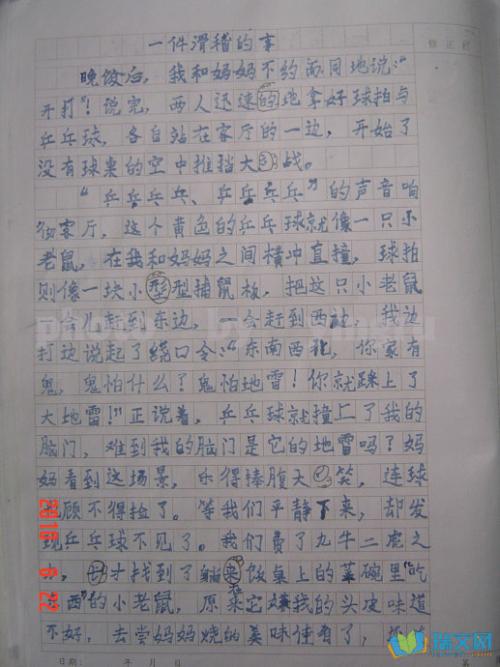 一件滑稽的事
晚饭后，我和妈妈不约而同地说：“
开打”！说完，两人迅速的地拿好球拍与
乒乓球，各自站在客厅的一边，开始了
没有球桌的空中推挡大战。
“乒乒乓乓、乒乒乓乓”的声音响
彻客厅，这个黄色的乒乓球就像一只小
老鼠，在我和妈妈之间横冲直撞，球拍
则像一块小型型捕鼠板，把这只小老鼠
一会儿赶到东边，一会赶到西边，我边
打边说起了绕口令：“东南西北，你家有
鬼，鬼怕什么？鬼怕地雷！你就踩上了
大地雷！”正说着，乒乓球就撞上了我的
脑门，难到我的脑门是它的地雷吗？妈
妈看到这场景，乐得捧腹大笑，连球
都顾不得捡了。等我们平静下来，却发
现乒乓球不见了。我们费了九牛二虎之
力，才找到了躺来饭桌上的菜碗里“吃
东西”的小老鼠，原来它嫌我的头皮味道
不好，去尝妈妈烧的美味佳肴了，
日期： 年 月 日
2010 6 22